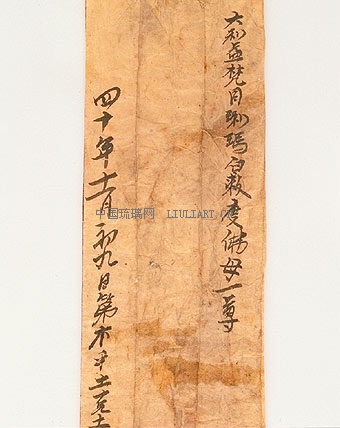 大利益梵目琍玛白救度佛母一尊
四十年十一月初九日第木
中国琉璃网 LIULIART.COM